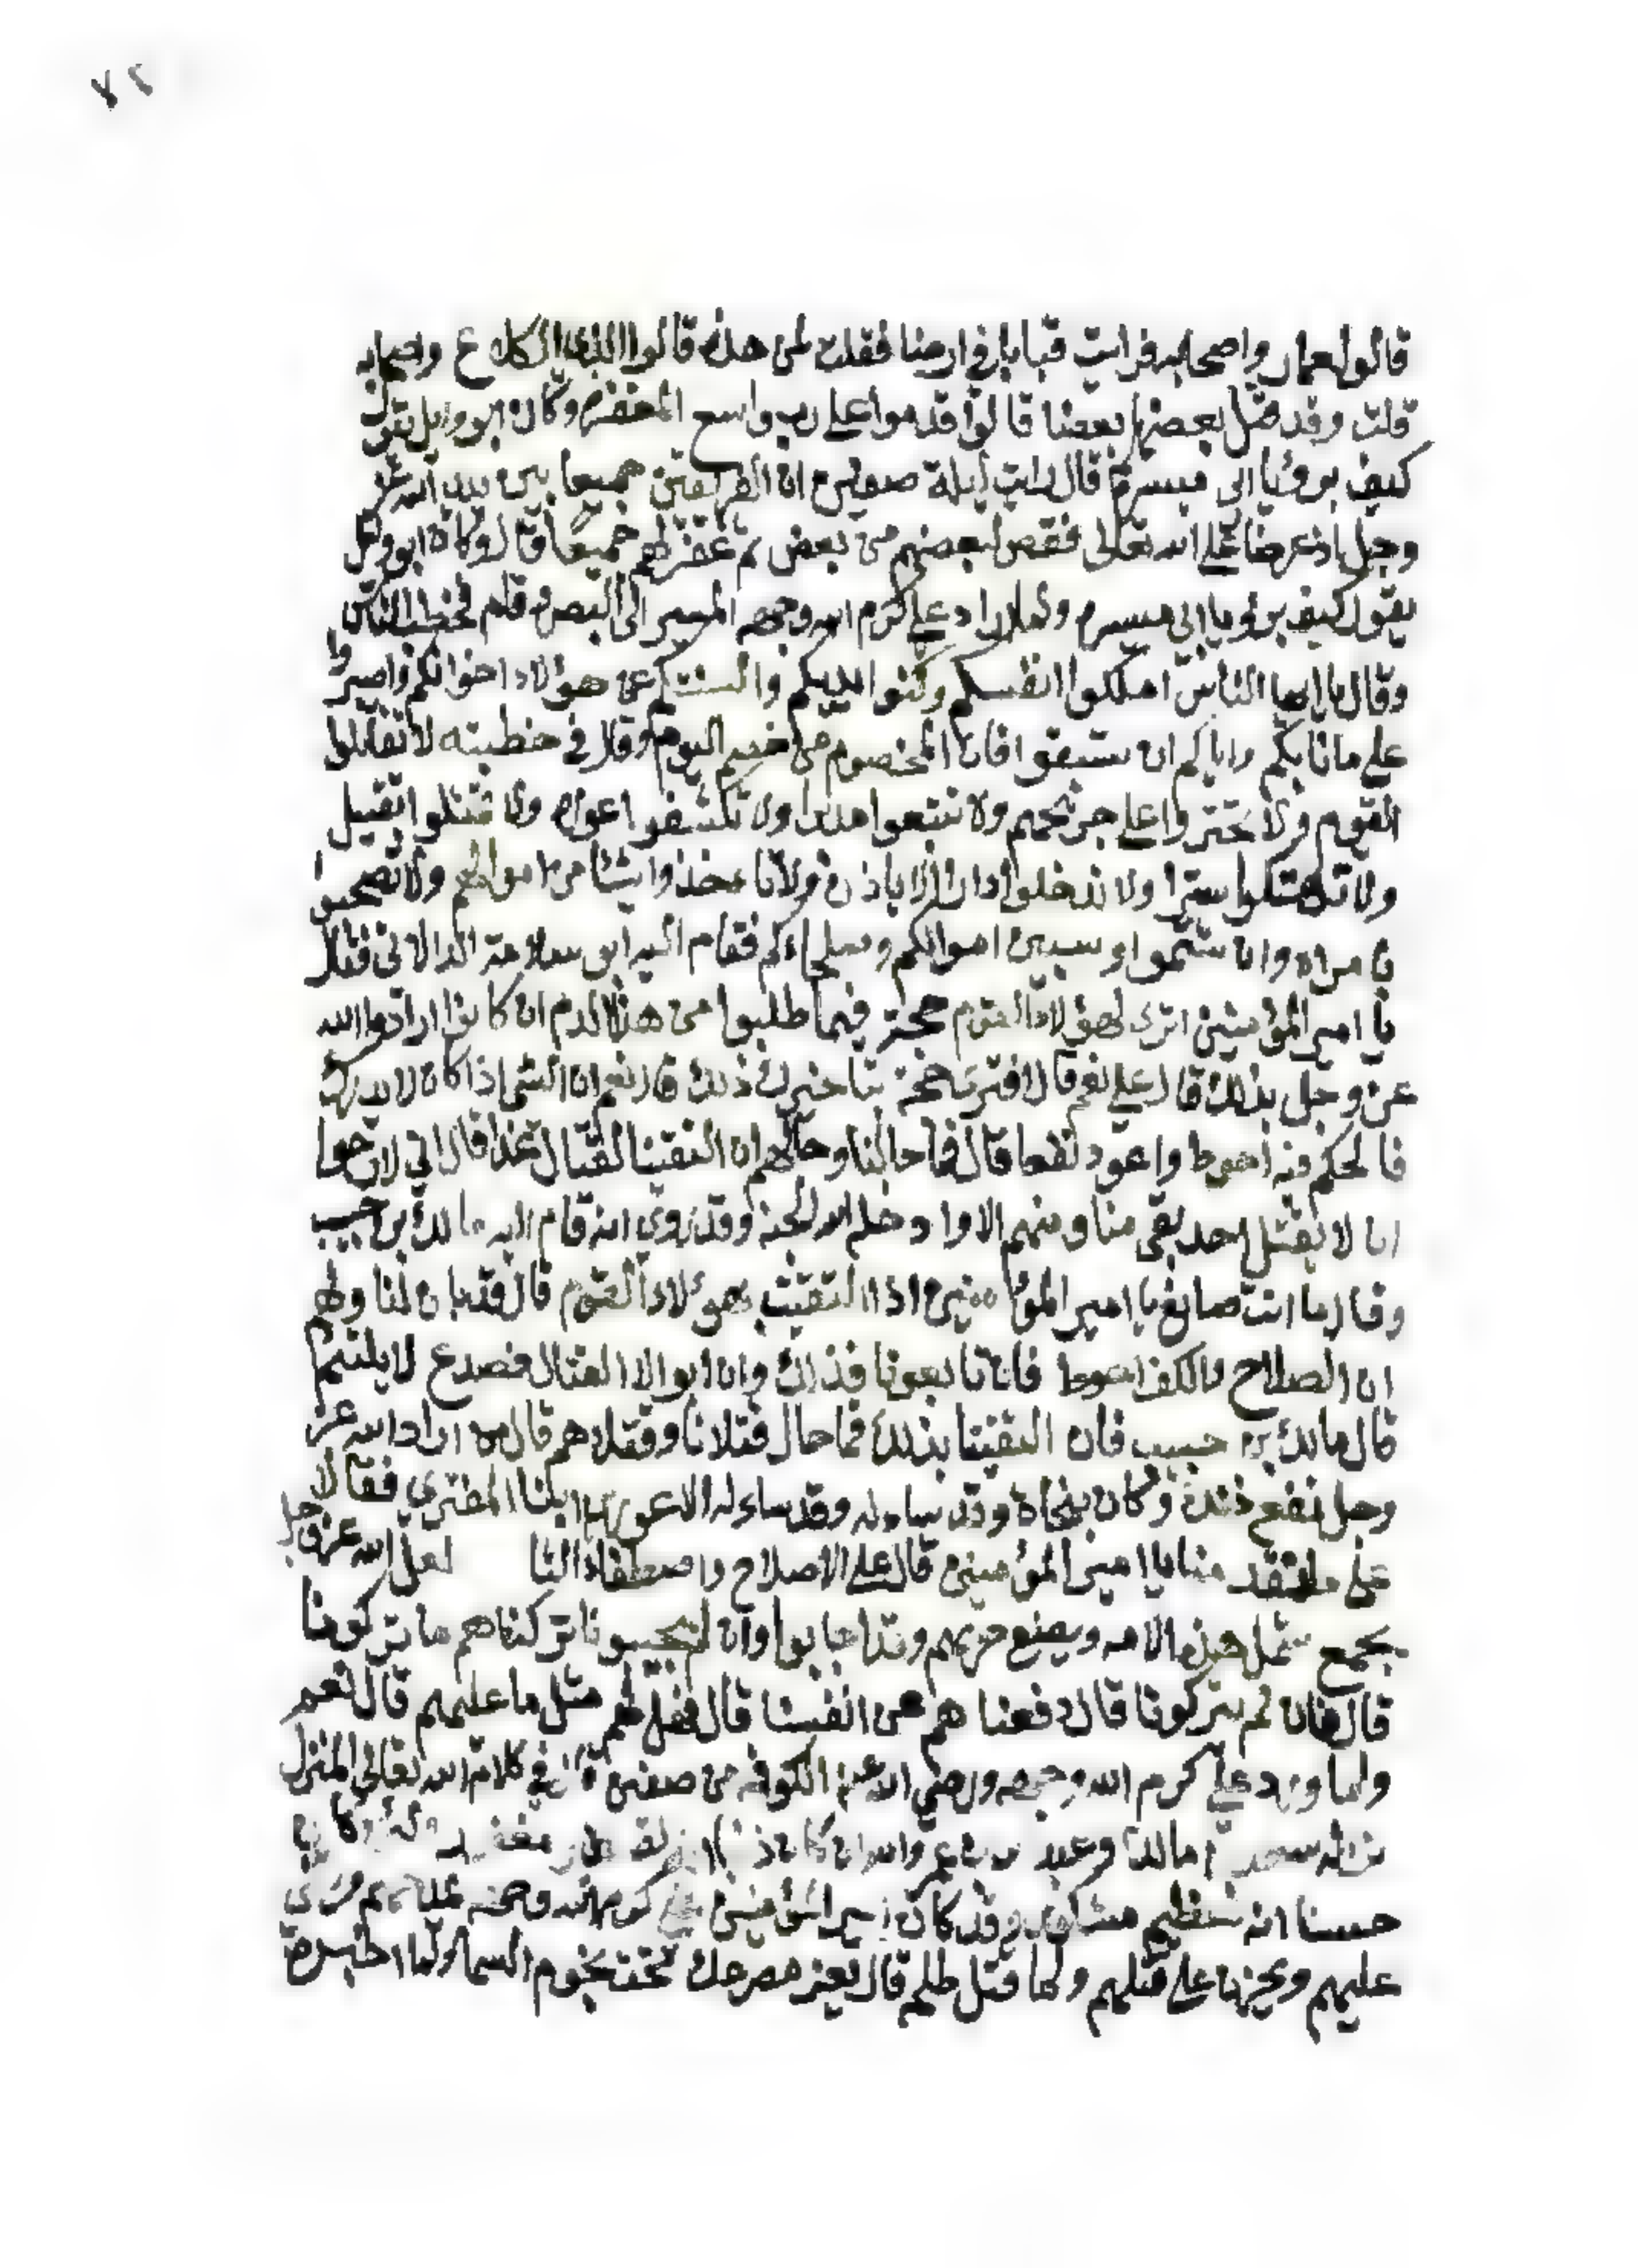 ٧٢
قالوا لعمار واصحابه فرايت قبابا في ارضنا فقلت لمن هذه قالوا لذي الكلاع واصحابه
قلت وقد قتل بعضهم بعضا قالوا قدموا على رب واسع المغفرة وكان ابو وايل يقول
كيف برؤيا ابي ميسرة قال رايت ليلة صفين ان الفريقين جميعا بين يدي الله عز
وجل اذ عرضنا على الله تعالى فقص لبعضهم من بعض ثم غفر لهم جميعا قال وكان ابو وايل
يقول كيف برؤيا ابي ميسره ولما اراد علي كرم الله وجهه المسير الى البصره قام فخطب الناس
وقال يا ايها الناس املكوا انفسكم وكفوا ايديكم والسنتكم عن هؤلاء اخوانكم واصبروا
على ما نابكم واياكم ان تسبقوا فان المخصوم من خصم اليوم وقال في خطبته لا تقاتلوا
القوم ولا على جريحهم ولا تتبعوا مدبرا ولا تكشفوا عوره ولا تمثلوا بقتيل
ولا تهتكوا سترا ولا تدخلوا دارا الا باذن ولا تاخذوا شيئا من اموالهم ولا
بامراه وان شتموا وسبين امرائكم وصلحاءكم فقام اليه ابو سلامة الدالاني فقال
يا امير المؤمنين اترى لهؤلاء القوم حجة فيما طلبوا من هذا الدم ان كانوا ارادوا الله
عز وجل بذلك قال علي نعم قال افترى حجة بتاخيرك ذلك قال نعم ان الشي اذا كان لا يدرك
فالحكم فيه احوط واعود نفعا قال فما حالنا وحالهم ان التقينا لقتال غدا قال اني لارجوا
ان لا يقتل احد نقي منا ومنهم الا وادخله الله الجنة وقد روي انه قام اليه مالك بن حبيب
وقال ما انت صانع يا امير المؤمنين اذا التقيت بهؤلاء القوم قال قد بان لنا ولهم
ان الصلاح بالكف احوط فان تابعونا فذلك وان ابوا الا القتال فصدع لا يلتئم
قال مالك بن حبيب فان التقينا بذلك فما حال قتلانا وقتلاهم قال من اراد الله عز
وجل نفع ذلك وكان نجاة وقد ساءله وقد ساءله الاعور بن المنقري فقال
على ما تقدمنا يا امير المؤمنين قال على الاصلاح واصطفاء لعل الله عز وجل
يجمع شمل هذه الامه ويضع حربهم وقد اجابوا وان لم يجيبونا تركناهم ما تركونا
قال فان لم يتركونا قال دفعنا هم عن انفسنا قال فهل لهم مثل ما عليهم قال نعم
ولما ورد علي كرم الله وجهه ورضي الله عنه الكوفه من صفين في كلام الله تعالى المنزل
سعد مالك وعبد الله بن عمر والله ان كان ذنبا مغفور ولئن كان
حسنا انه لعظيم مشكور وقد كان امير المؤمنين علي كرم الله وجهه
عليهم ويحزن على قتلهم ولما قتل طلحه قال يعز مصرعك تحت نجوم السماء ولما